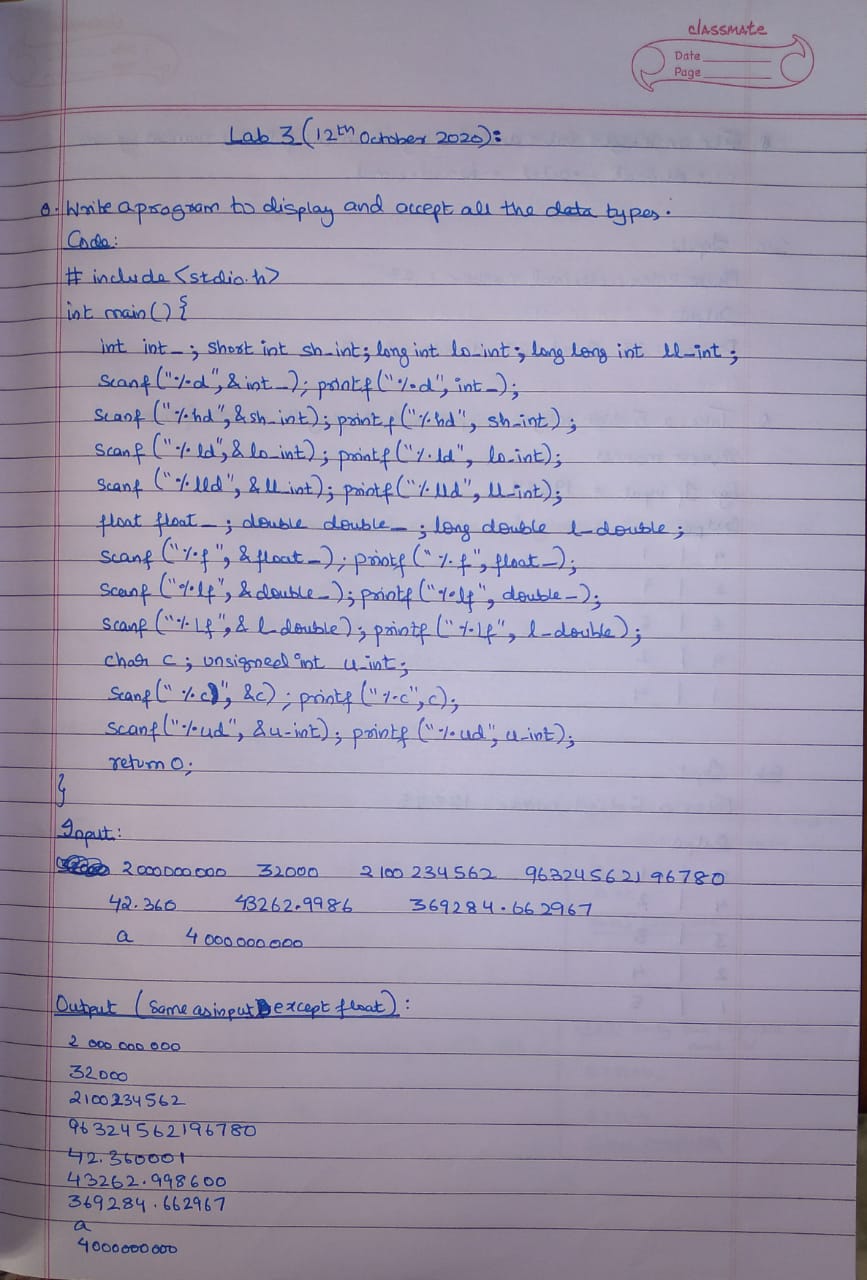 classmate
Date
Page
Lab 3 (12th October 2020):
Q. Write a program to display and accept all the data types.
Code:
# include <stdio.h>
int main() {
int int_; short int sh_int; long int lo_int; long long int ll_int;
scanf ("%d", &int_); printf("%d", int_);
scanf ("%hd", &sh_int); printf ("%hd", sh_int);
scanf ("%ld", &lo_int); printf("%ld", lo_int);
scanf ("%lld", &ll_int); printf("%lld", ll_int);
float float_; double double_; long double l_double;
scanf ("%f", &float_); printf ("%f", float_);
scanf ("%lf", &double_); printf ("%lf", double_);
scanf ("%lf", &l_double); printf ("%lf", l_double);
char c; unsigned int u_int;
scanf (" %c", &c); printf ("%c", c);
scanf ("%ud", &u_int); printf ("%ud", u_int);
return 0;
}
Input:
2000000000 32000 2100234562 96324562196780
42.360 43262.9986 369284.662967
a 4000000000
Output (Same as input except float):
2000000000
32000
2100234562
96324562196780
42.360001
43262.998600
369284.662967
a
4000000000